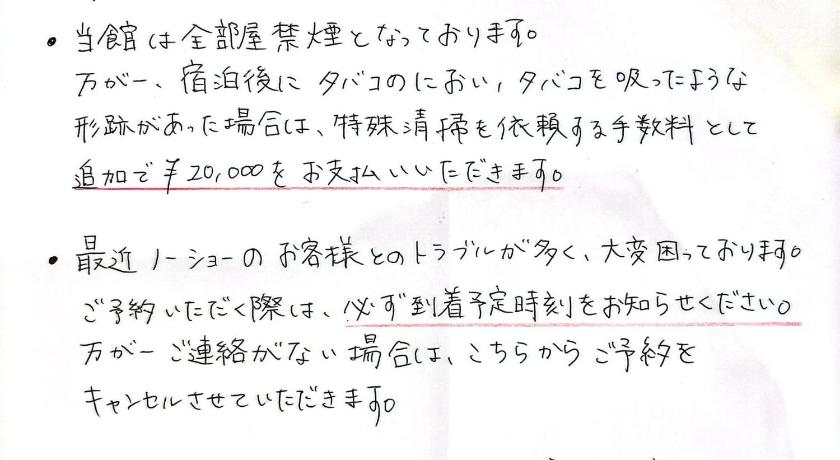 • 当館は全部屋禁煙となっております。
万が一、宿泊後にタバコのにおい、タバコを吸ったような
形跡があった場合は、特殊清掃を依頼する手数料として
追加で¥20,000をお支払いいただきます。
• 最近ノーショーのお客様とのトラブルが多く、大変困っております。
ご予約いただく際は、必ず到着予定時刻をお知らせください。
万が一ご連絡がない場合は、こちらからご予約を
キャンセルさせていただきます。